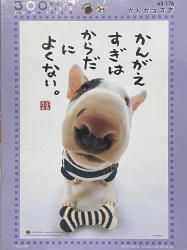 300
63-176
かんがえすぎ
かんがえ
すぎは
からだ
に
よくない。